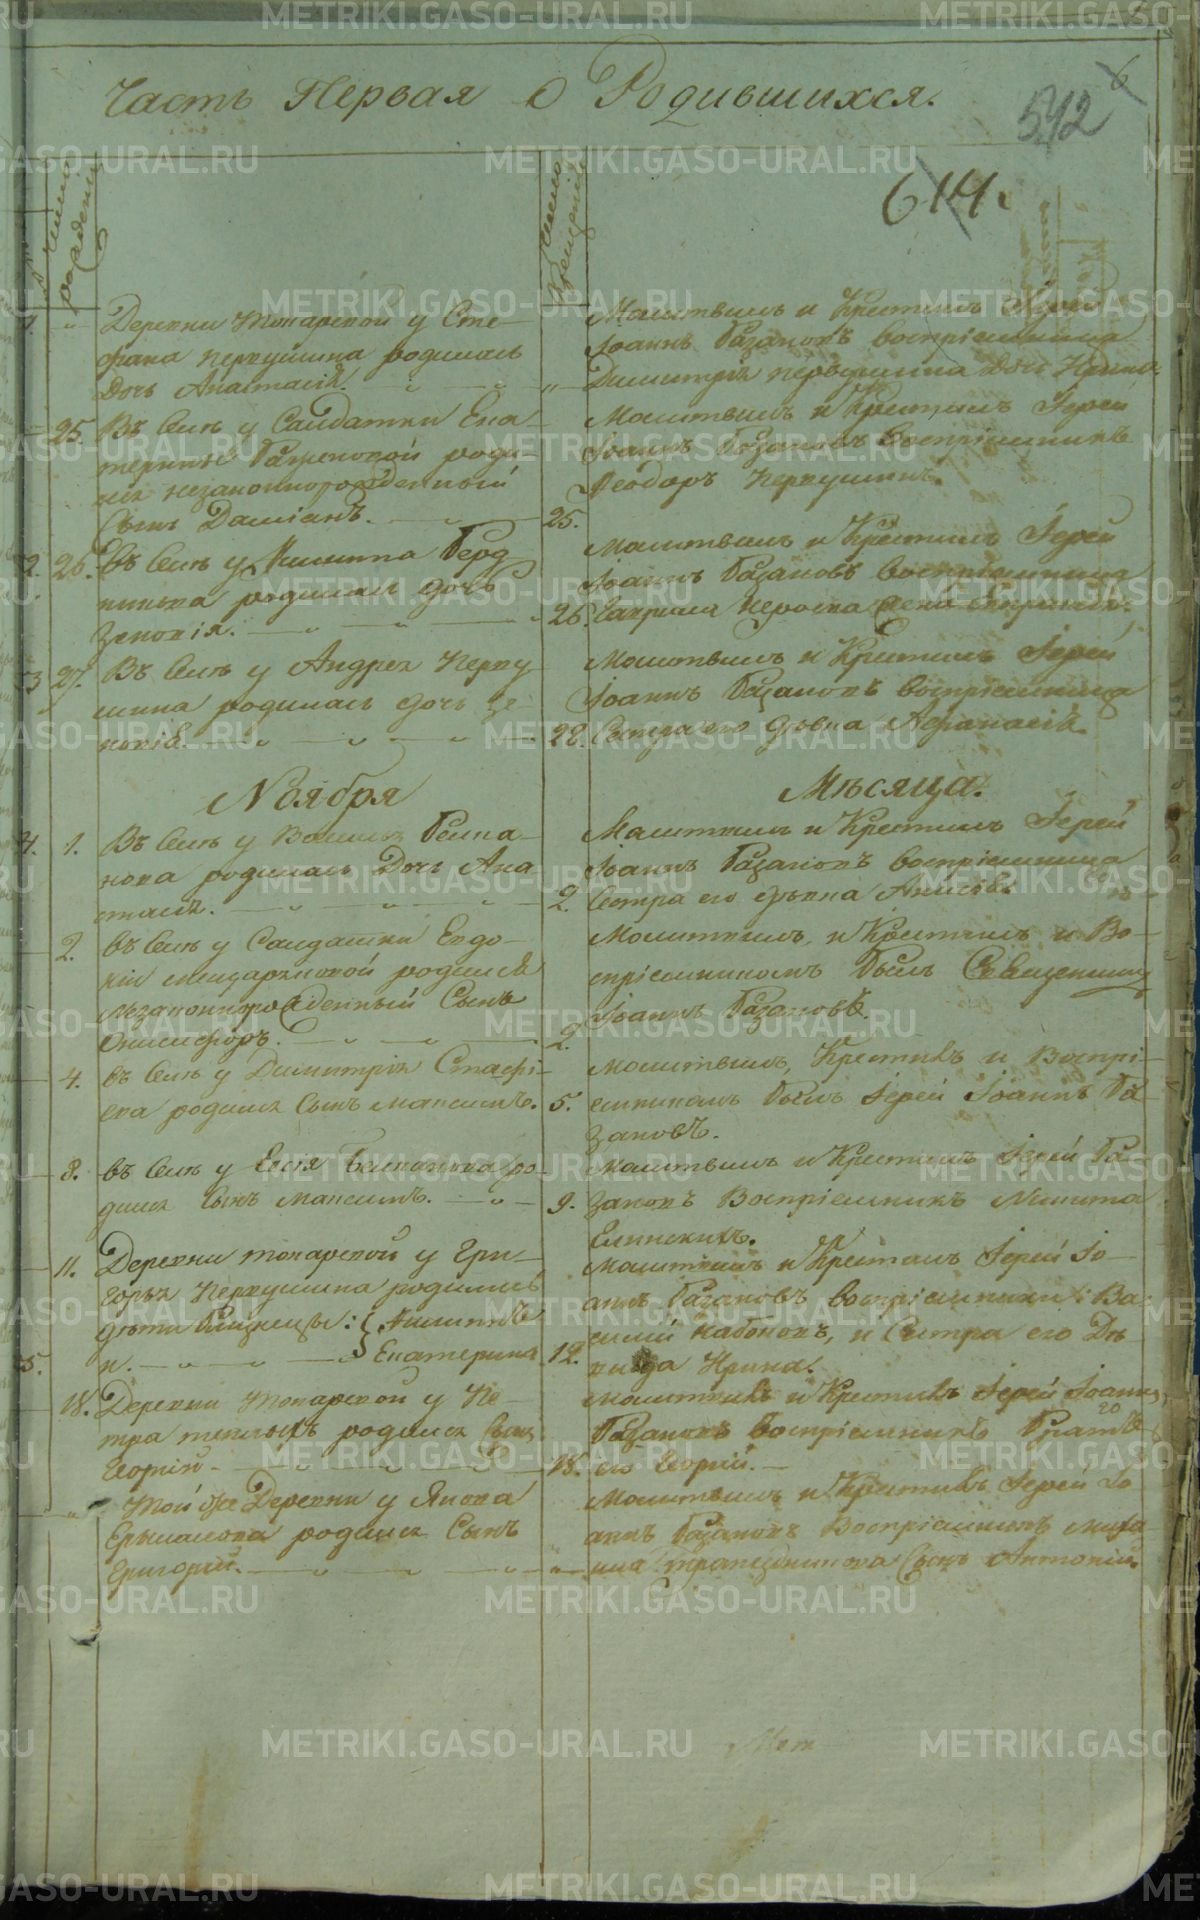 Часть Первая О Родившихся.
542
614.
число рождения
число крещения
Деревни Токарской у Сте-
фана Первушина родилась
дочь Анастасія.
Молитвилъ и Крестилъ Іерей
Іоаннъ Базановъ воспріемница
Димитрія Первушина дочь Ирина.
25. Въ селѣ у Салдатки Ека-
терины родил-
ся незаконнорожденный
сынъ Даміанъ.
25.
Молитвилъ и Крестилъ Іерей
Іоаннъ Базановъ воспріемникъ
Ѳеодоръ Первушинъ.
2. 26. въ селѣ у Никиты Берд-
никова родилась дочь
Зеновія.
26.
Молитвилъ и Крестилъ Іерей
Іоаннъ Базановъ воспріемница
3 27. Въ селѣ у Андрея Перву-
шина родилась дочь Зе-
новія.
28.
Молитвилъ и Крестилъ Іерей
Іоаннъ Базановъ воспріемница
Сестра его дѣвка Афанасія.
Ноября Мѣсяца.
4. 1. Въ селѣ у Василья Белка-
нова родилась Дочь Ана-
стасія.
2.
Молитвилъ и Крестилъ Іерей
Іоаннъ Базановъ воспріемница
Сестра его дѣвка
2. въ селѣ у Салдатки Евдо-
кіи родился
незаконнорожденный Сынъ
Онисифоръ.
2.
Молитвилъ, и Крестилъ и Во-
спріемникомъ былъ Священникъ
Іоаннъ Базановъ.
4. въ селѣ у Димитрія Стафі-
ева родился сынъ Максимъ.
5.
Молитвилъ, Крестилъ и Воспрі-
емникомъ былъ Іерей Іоаннъ Ба-
зановъ.
8. въ селѣ у Елисія Белканова ро-
дился сынъ Максимъ.
9.
Молитвилъ и Крестилъ Іерей Ба-
зановъ Воспріемникъ Никита
11. Деревни Токарской у Гри-
горья Первушина родились
дѣти близнецы: Филиппъ
и. Екатерина
5.
12.
Молитвилъ и Крестилъ Іерей Іо-
аннъ Базановъ воспріемники: Ва-
силій Набоковъ, и Сестра его Дѣ-
вица Ирина.
18. Деревни Токарской у Пе-
тра родился Сынъ
Георгій
18.
Молитвилъ и Крестилъ Іерей Іоаннъ
Базановъ воспріемникъ братъ
его Георгій.
Той же Деревни у Якова
Ермакова родился Сынъ
Григорій.
Молитвилъ и Крестилъ Іерей Іо-
аннъ Базановъ Воспріемникъ Миха-
ила Трапезникова Сынъ Антоній.
METRIKI.GASO-URAL.RU